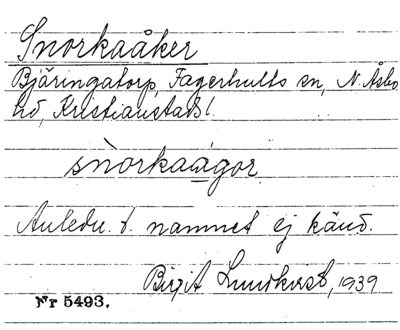 Snorkaåker
Bjäringatorp, Fagerhults sn, N. Åsbo
hd, Kristianstads l.
snòrkaågor
Anledn. t. namnet ej känd.
Birgit Lundkvist, 1939
Nr 5493.